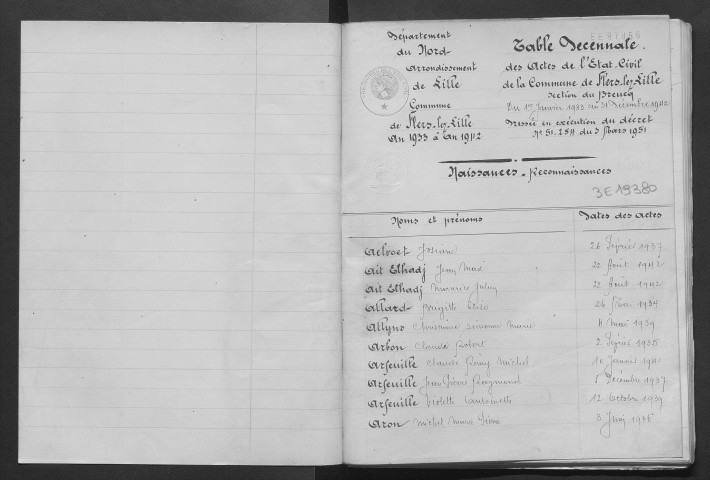 Département
du Nord
Arrondissement
de Lille
Commune
de Flers-lez-Lille
An 1933 à An 1942
Table Décennale.
des Actes de l'État-Civil
de la Commune de Flers-lez-Lille
Section du Breucq
Du 1er Janvier 1933 au 31 Décembre 1942
Dressée en exécution du décret
N° 51-284 du 3 Mars 1951
Naissances - Reconnaissances
3E19380
Noms et prénoms Dates des Actes
Aelvoet Josiane 26 Février 1937
Ait Elhadj Jean 22 Août 1942
Ait Elhadj Maurice 22 Août 1942
Allard Brigitte 26 Mai 1934
Allyno Christiane Marie 4 Mai 1939
Arbon Claude Robert 2 Février 1935
Arfeuille Claude Rémy Michel Janvier
Arfeuille Jean Pierre Raymond Décembre 1937
Arfeuille Violette Antoinette 12 Octobre 1939
Aron Michel 3 Juin 1936